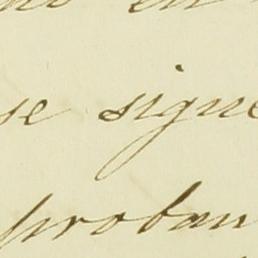 en
se sigue
proban